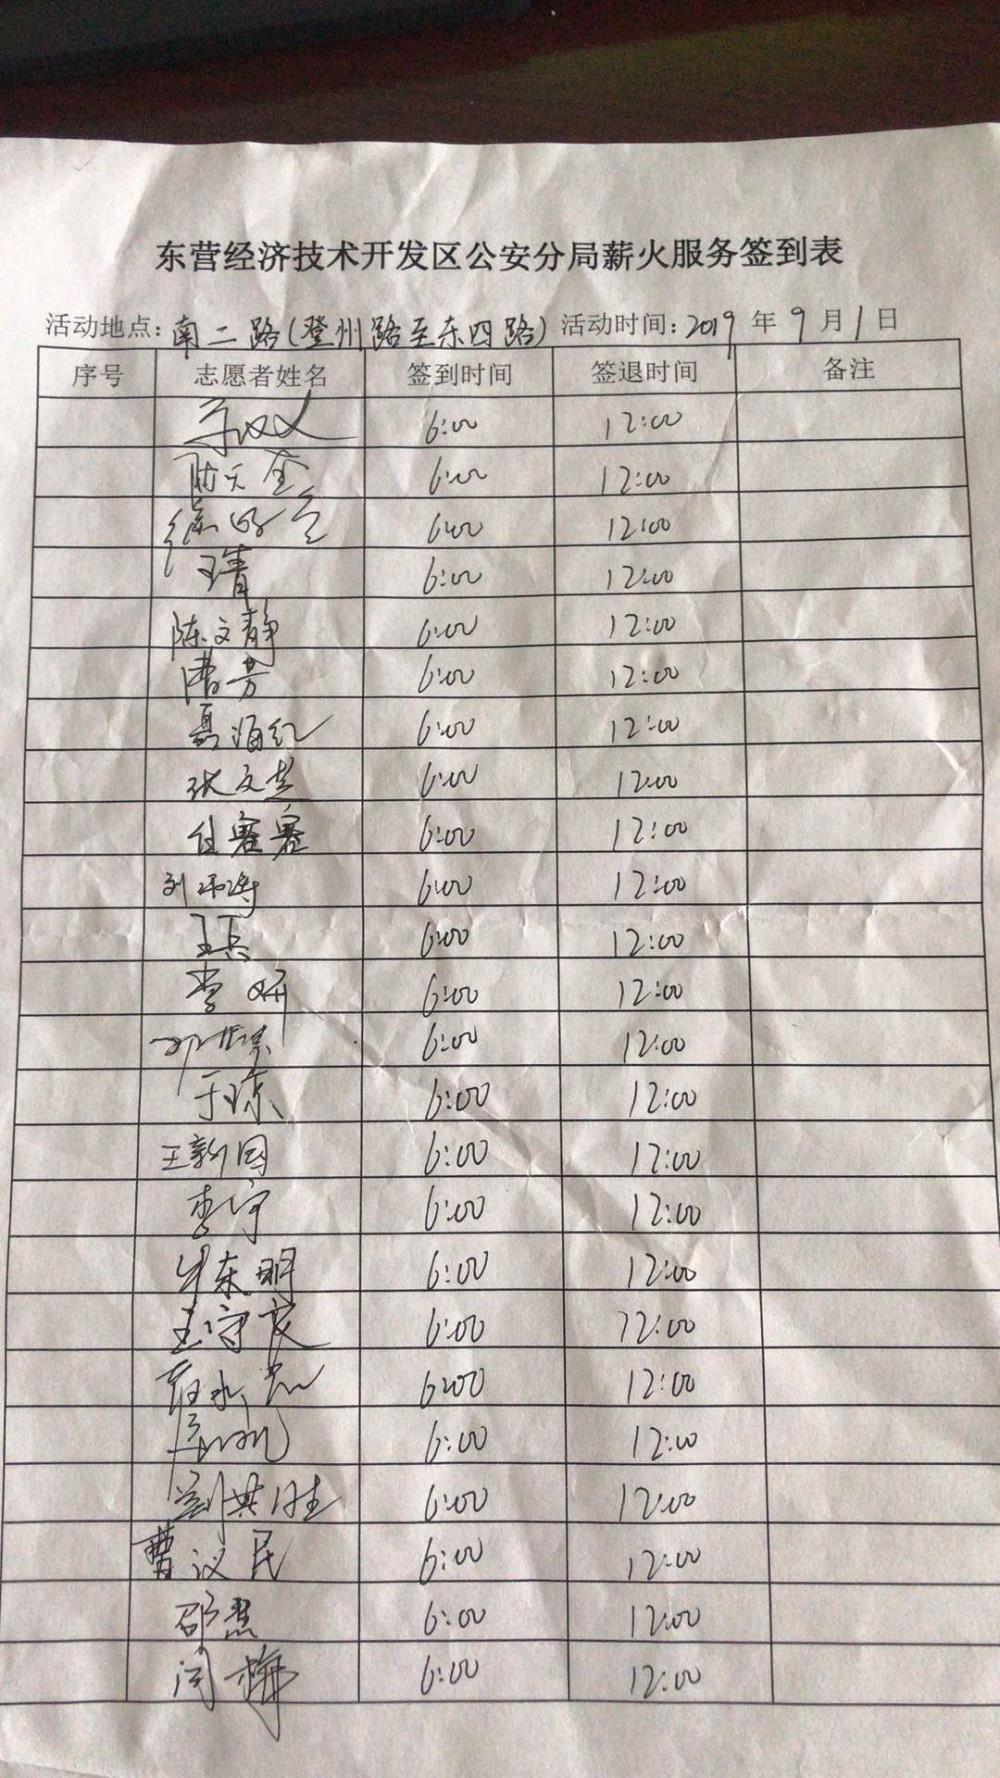 东营经济技术开发区公安分局薪火服务签到表
活动地点:南二路(登州路至东四路) 活动时间:2019年9月1日
序号 志愿者姓名 签到时间 签退时间 备注
6:00 12:00
6:00 12:00
6:00 12:00
王青 6:00 12:00
陈文静 6:00 12:00
芳 6:00 12:00
聂海红 6:00 12:00
张文 6:00 12:00
任赛赛 6:00 12:00
刘 6:00 12:00
王兵 6:00 12:00
李妍 6:00 12:00
6:00 12:00
于琼 6:00 12:00
王新国 6:00 12:00
李宁 6:00 12:00
牛东明 6:00 12:00
王守文 6:00 12:00
永 6:00 12:00
6:00 12:00
刘其胜 6:00 12:00
曹议民 6:00 12:00
邵慧 6:00 12:00
闫梅 6:00 12:00